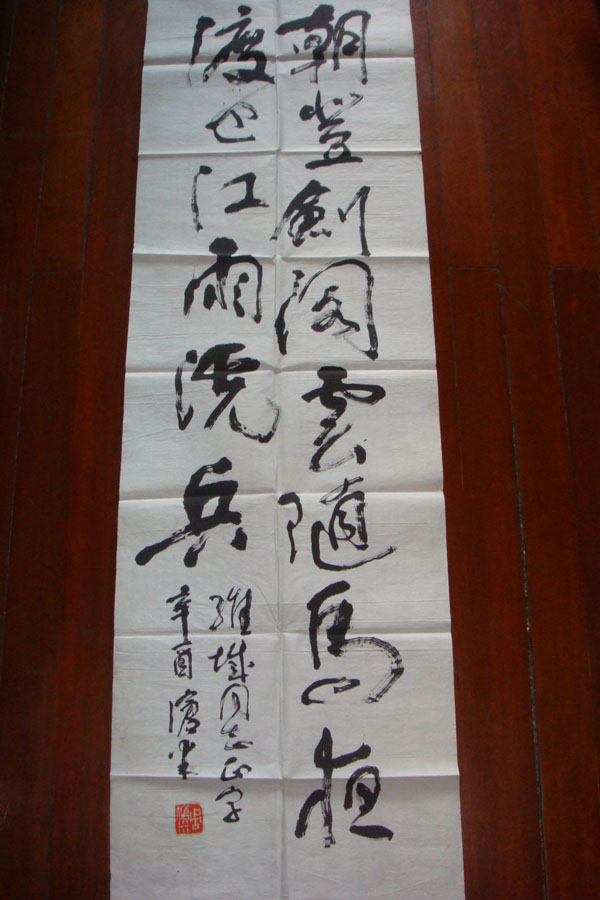 朝登劍閣雲隨馬夜
渡巴江雨洗兵
維城同志正字
辛酉滄米